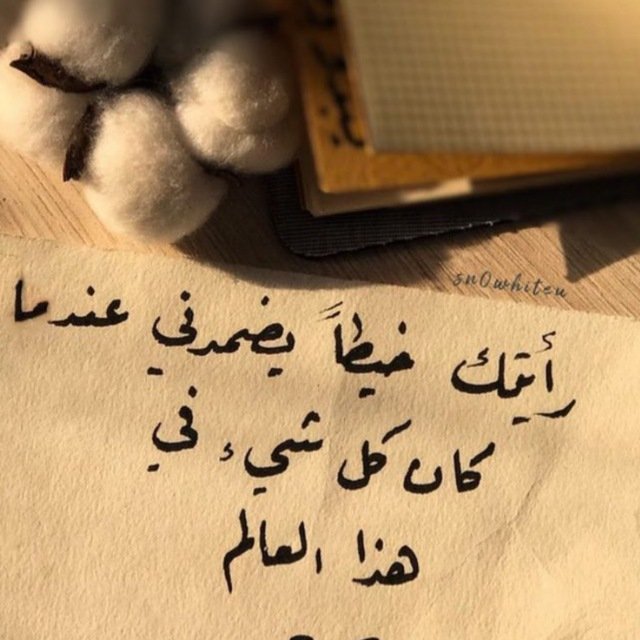 sn0whiteu
رأيتك خيطاً يضمدني عندما
كان كل شيء في
هذا العالم